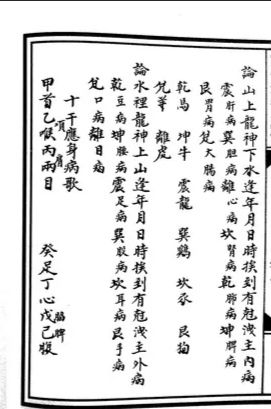 論山上龍神下水逢年月日時挨到有尅洩主內病
震肝病巽胆病離心病坎腎病乾肺病坤脾病
艮胃病兌大腸病
乾馬 坤牛 震龍 巽鷄 坎豕 艮狗
兌羊 離雉
論水裡龍神上山逢年月日時挨到有尅洩主外病
乾豆病坤腰病震足病巽股病坎耳病艮手病
兌口病離目病
十干應身病歌
甲首乙喉丙兩目 癸足丁心戊己腹
項 肩 腦脾